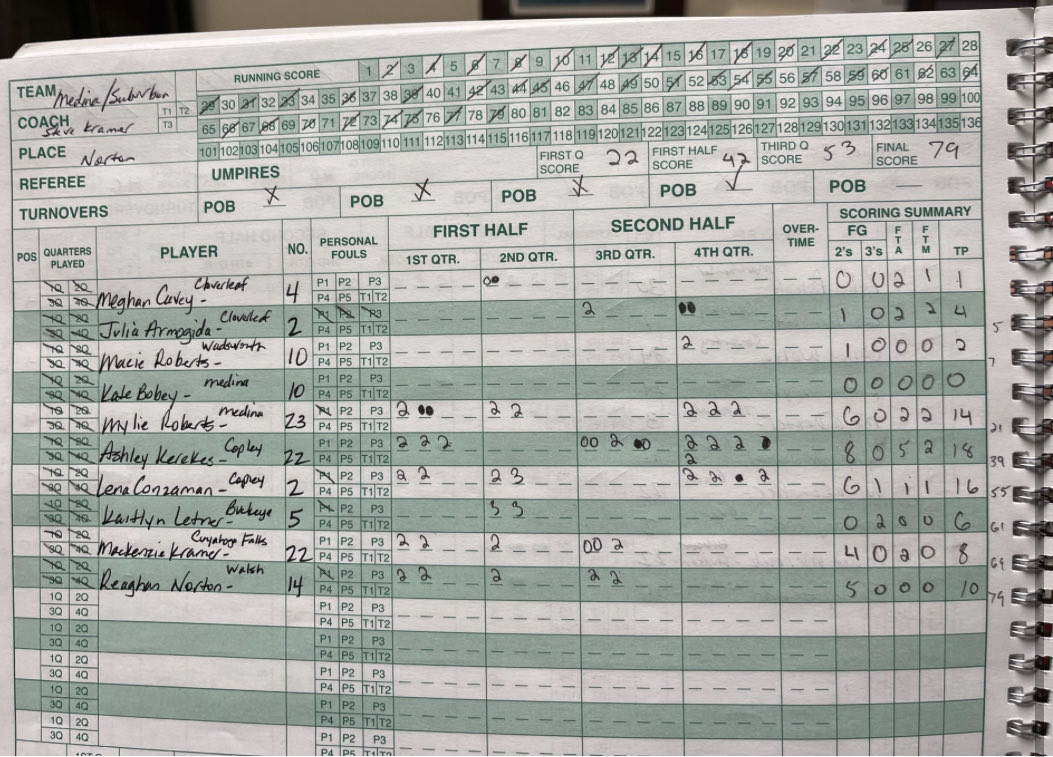 RUNNING SCORE 1 2 3 4 5 6 7 8 9 10 11 12 13 14 15 16 17 18 19 20 21 22 23 24 25 26 27 28
TEAM Medina/Suburban T1 T2 29 30 31 32 33 34 35 36 37 38 39 40 41 42 43 44 45 46 47 48 49 50 51 52 53 54 55 56 57 58 59 60 61 62 63 64
COACH Steve Kramer T3 65 66 67 68 69 70 71 72 73 74 75 76 77 78 79 80 81 82 83 84 85 86 87 88 89 90 91 92 93 94 95 96 97 98 99 100
101 102 103 104 105 106 107 108 109 110 111 112 113 114 115 116 117 118 119 120 121 122 123 124 125 126 127 128 129 130 131 132 133 134 135 136
PLACE Norton FIRST Q SCORE 22 FIRST HALF SCORE 42 THIRD Q SCORE 53 FINAL SCORE 79
REFEREE UMPIRES
TURNOVERS POB X POB X POB X POB ✓ POB —
POS QUARTERS PLAYED PLAYER NO. PERSONAL FOULS FIRST HALF SECOND HALF OVER-TIME SCORING SUMMARY
1ST QTR. 2ND QTR. 3RD QTR. 4TH QTR. FG 2's 3's FTA FTM TP
1Q 2Q Cloverleaf P1 P2 P3 00
3Q 4Q Meghan Cavey - 4 P4 P5 T1 T2 0 0 2 1 1
1Q 2Q Cloverleaf P1 P2 P3 2 ●●
3Q 4Q Julia Armogida - 2 P4 P5 T1 T2 1 0 2 2 4 5
1Q 2Q Wadsworth P1 P2 P3 2
3Q 4Q Macie Roberts - 10 P4 P5 T1 T2 1 0 0 0 2 7
1Q 2Q medina P1 P2 P3
3Q 4Q Kate Bobey - 10 P4 P5 T1 T2 0 0 0 0 0
1Q 2Q medina P1 P2 P3 2 ●● 2 2 2 2 2
3Q 4Q Mylie Roberts - 23 P4 P5 T1 T2 6 0 2 2 14 21
1Q 2Q Copley P1 P2 P3 2 2 2 00 2 ●0 2 2 2 ●
3Q 4Q Ashley Kerekes - 22 P4 P5 T1 T2 2 8 0 5 2 18 39
1Q 2Q Copley P1 P2 P3 2 2 2 3 2 2 ● 2
3Q 4Q Lena Conzaman - 2 P4 P5 T1 T2 6 1 1 1 16 55
1Q 2Q Buckeye P1 P2 P3 3 3
3Q 4Q Kaitlyn Letner - 5 P4 P5 T1 T2 0 2 0 0 6 61
1Q 2Q Cuyahoga Falls P1 P2 P3 2 2 2 00 2
3Q 4Q Mackenzie Kramer - 22 P4 P5 T1 T2 4 0 2 0 8 69
1Q 2Q Walsh P1 P2 P3 2 2 2 2 2
3Q 4Q Reaghan Norton - 14 P4 P5 T1 T2 5 0 0 0 10 79
1Q 2Q P1 P2 P3
3Q 4Q P4 P5 T1 T2
1Q 2Q P1 P2 P3
3Q 4Q P4 P5 T1 T2
1Q 2Q P1 P2 P3
3Q 4Q P4 P5 T1 T2
1Q 2Q P1 P2 P3
3Q 4Q P4 P5 T1 T2
1Q 2Q P1 P2 P3
3Q 4Q P4 P5 T1 T2